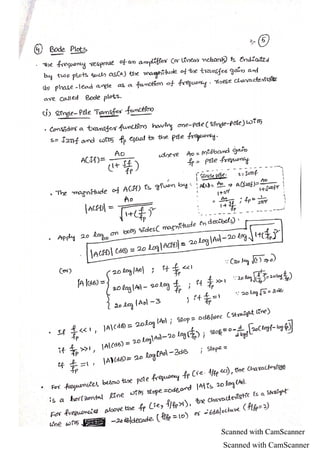 ④ Bode Plots.
• The frequency response of an amplifier (or linear network) is indicated
by two plots such as (a) the magnitude of the transfer gain and
its phase-lead angle as a function of frequency. These characteristics
are called Bode plots.
(i) Single-Pole Transfer function
• Consider a transfer function having one-pole (single-pole) with
s = j2πf and with fp equal to the pole frequency.
A(jf) = Ao / (1 + j f/fp) where Ao = midband gain
fp = pole frequency
• The magnitude of A(jf) is given by:
|A(jf)| = Ao / √(1+(f/fp)²)
• Apply 20 log₁₀ on both sides (magnitude in decibels).
|A(jf)| (dB) = 20 log |A(jf)| = 20 log |Ao| - 20 log √(1+(f/fp)²)
(or)
|A|(dB) = { 20 log |Ao| ; if f/fp <<1
20 log |Ao| - 20 log f/fp ; if f/fp >>1
20 log |Ao| - 3 ; if f/fp = 1
• If f/fp <<1, |A|(dB) = 20 log |Ao| ; slope = 0 dB/dec (straight line)
if f/fp >>1, |A|(dB) = 20 log |Ao| - 20 log (f/fp)
if f/fp = 1, |A|(dB) = 20 log |Ao| - 3dB ; slope =
• For frequencies below the pole frequency fp (i.e. f/fp <1), the characteristic
is a horizontal line with slope = 0 dB/dec and |A| is 20 log |Ao|.
For frequencies above the fp (i.e., f/fp >1), the characteristic is a straight
line with -20dB/decade (f/fp = 10) or -6dB/octave (f/fp = 2)
Scanned with CamScanner
Scanned with CamScanner